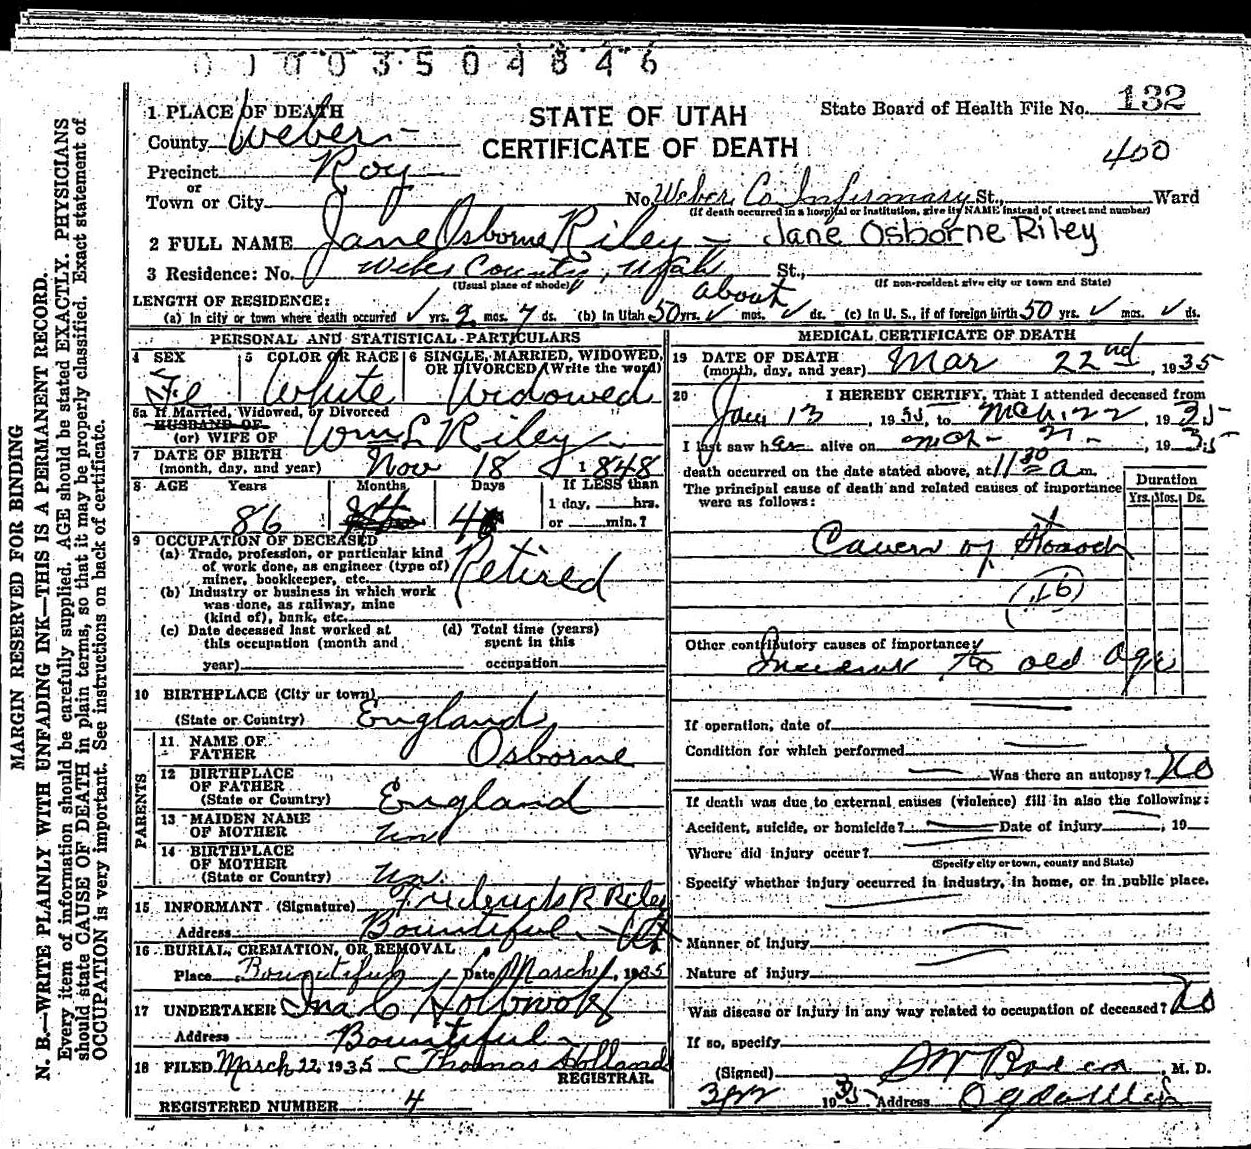 00003504846
1 PLACE OF DEATH
STATE OF UTAH
CERTIFICATE OF DEATH
State Board of Health File No. 132
400
County Weber
Precinct Roy
or
Town or City
No. Weber Co Infirmary St., Ward
(If death occurred in a hospital or institution, give its NAME instead of street and number)
2 FULL NAME Jane Osborne Riley - Jane Osborne Riley
3 Residence: No. Weber County, Utah St.,
(Usual place of abode)
(If non-resident give city or town and State)
LENGTH OF RESIDENCE:
about
(a) In city or town where death occurred ✓ yrs. 2 mos. 7 ds. (b) In Utah 50 yrs. ✓ mos. ✓ ds. (c) In U. S., if of foreign birth 50 yrs. ✓ mos. ✓ ds.
PERSONAL AND STATISTICAL PARTICULARS
4 SEX
Fe
5 COLOR OR RACE
White
6 SINGLE, MARRIED, WIDOWED, OR DIVORCED (Write the word)
Widowed
6a If Married, Widowed, or Divorced
HUSBAND OF
(or) WIFE OF Wm L Riley
7 DATE OF BIRTH
(month, day, and year) Nov 18 1848
8 AGE Years Months Days If LESS than
1 day, hrs.
86 4
or min.?
9 OCCUPATION OF DECEASED
(a) Trade, profession, or particular kind
of work done, as engineer (type of)
miner, bookkeeper, etc. Retired
(b) Industry or business in which work
was done, as railway, mine
(kind of), bank, etc.
(c) Date deceased last worked at
this occupation (month and
year)
(d) Total time (years)
spent in this
occupation
10 BIRTHPLACE (City or town)
(State or Country) England
PARENTS
11 NAME OF
FATHER Osborne
12 BIRTHPLACE
OF FATHER
(State or Country) England
13 MAIDEN NAME
OF MOTHER un
14 BIRTHPLACE
OF MOTHER
(State or Country) un
15 INFORMANT (Signature) Frederick R Riley
Address Bountiful - Ut
16 BURIAL, CREMATION, OR REMOVAL
Place Bountiful Date March, 1935
17 UNDERTAKER Ina C Holbrook
Address Bountiful
18 FILED March 22 1935 Thomas Holland
REGISTRAR.
REGISTERED NUMBER 4
MEDICAL CERTIFICATE OF DEATH
19 DATE OF DEATH
(month, day, and year) Mar 22nd, 1935
20 I HEREBY CERTIFY, That I attended deceased from
Jan 13, 1935, to Mch 22, 1935
I last saw her alive on Mch - 21 -, 1935
death occurred on the date stated above, at 11 30 a m.
The principal cause of death and related causes of importance
were as follows:
Duration
Yrs. Mos. Ds.
Cancer of Stomach
(46)
Other contributory causes of importance:
to old age
If operation, date of
Condition for which performed
Was there an autopsy? No
If death was due to external causes (violence) fill in also the following:
Accident, suicide, or homicide? Date of injury, 19
Where did injury occur?
(Specify city or town, county and State)
Specify whether injury occurred in industry, in home, or in public place.
Manner of injury
Nature of injury
Was disease or injury in any way related to occupation of deceased? No
If so, specify
(Signed) M. D.
3/22 1935 Address Ogden Utah
MARGIN RESERVED FOR BINDING
N. B.—WRITE PLAINLY WITH UNFADING INK—THIS IS A PERMANENT RECORD.
Every item of information should be carefully supplied. AGE should be stated EXACTLY. PHYSICIANS
should state CAUSE OF DEATH in plain terms, so that it may be properly classified. Exact statement of
OCCUPATION is very important. See instructions on back of certificate.